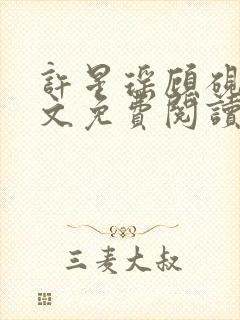 許星琛顧硯
文免費閱讀
三麦大叔